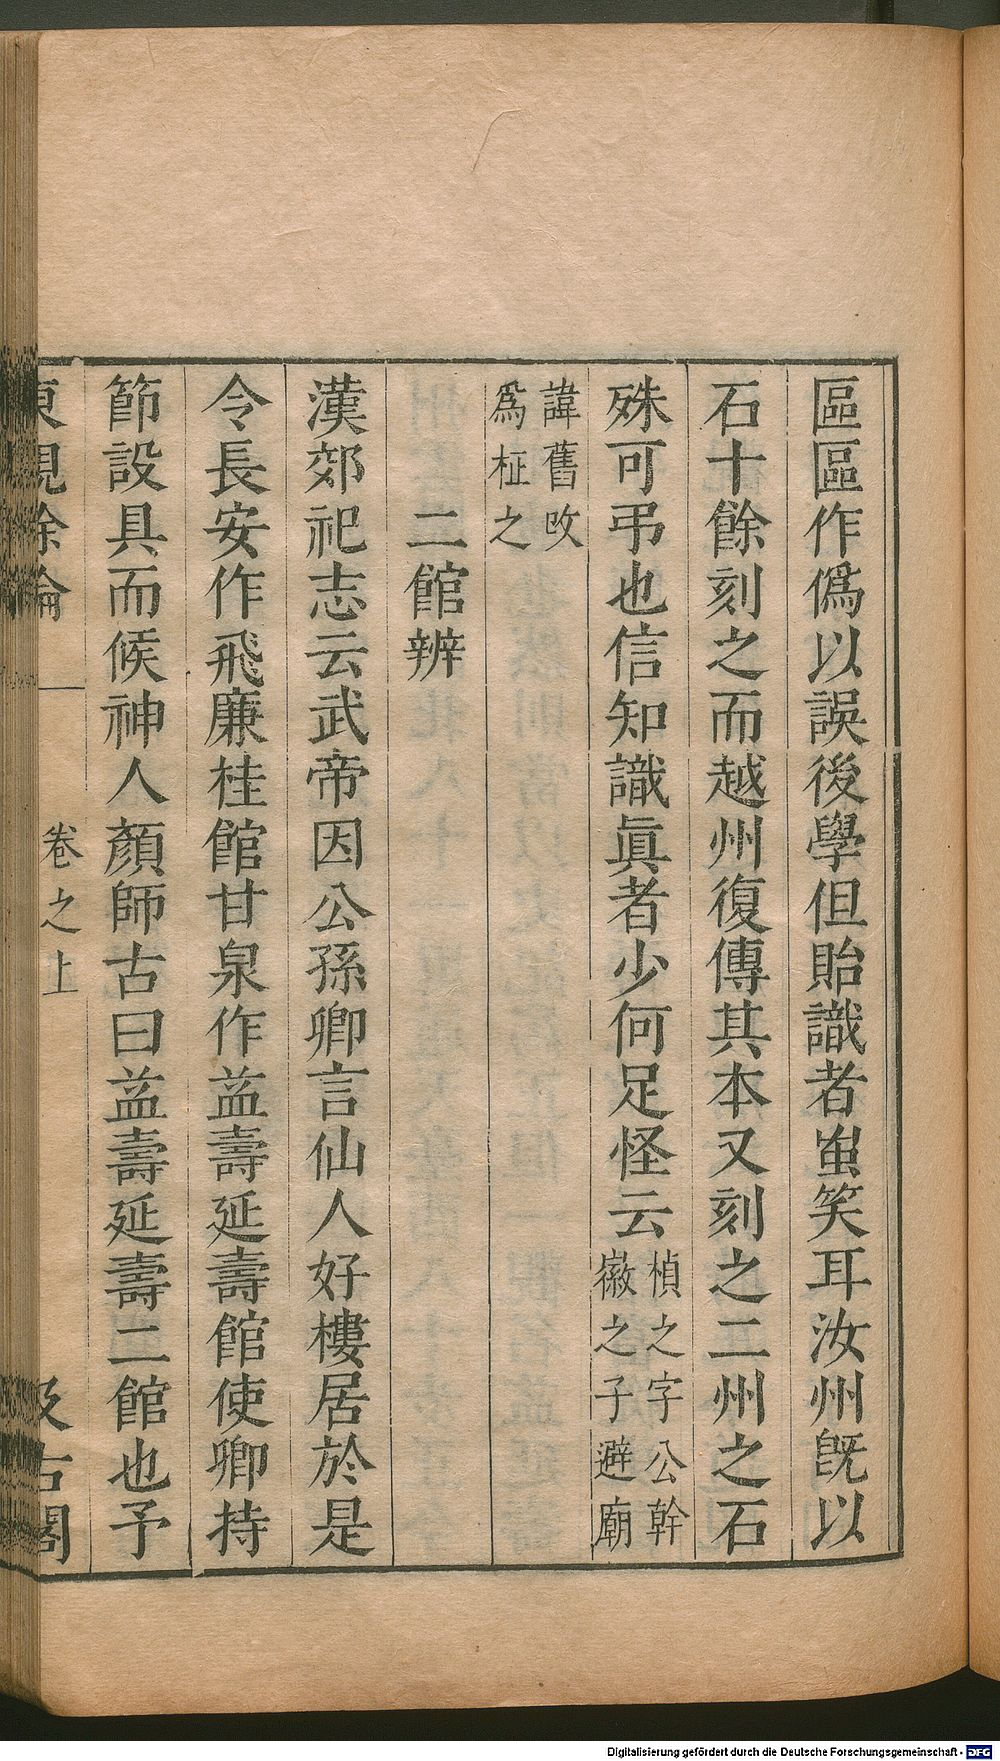 區區作僞以誤後學但貽識者蚩笑耳汝州旣以
石十餘刻之而越州復傳其本又刻之二州之石
殊可弔也信知識眞者少何足怪云楨之字公幹
徽之子避廟
諱舊攺
爲柾之
二館辨
漢郊祀志云武帝因公孫卿言仙人好樓居於是
令長安作飛廉桂館甘泉作益壽延壽館使卿持
節設具而候神人顏師古曰益壽延壽二館也予
東觀餘論
卷之上
汲古閣
Digitalisierung gefördert durch die Deutsche Forschungsgemeinschaft - DFG